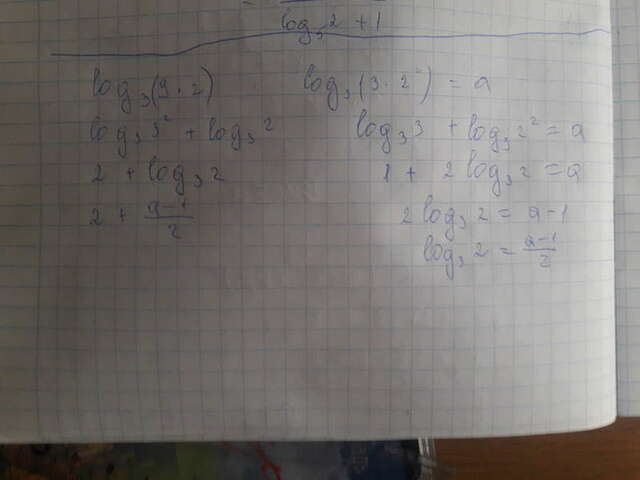 log₃2 + 1
log₃(9·2)
log₃3² + log₃2
2 + log₃2
2 + (a-1)/2
log₃(3·2²) = a
log₃3 + log₃2² = a
1 + 2log₃2 = a
2log₃2 = a-1
log₃2 = (a-1)/2